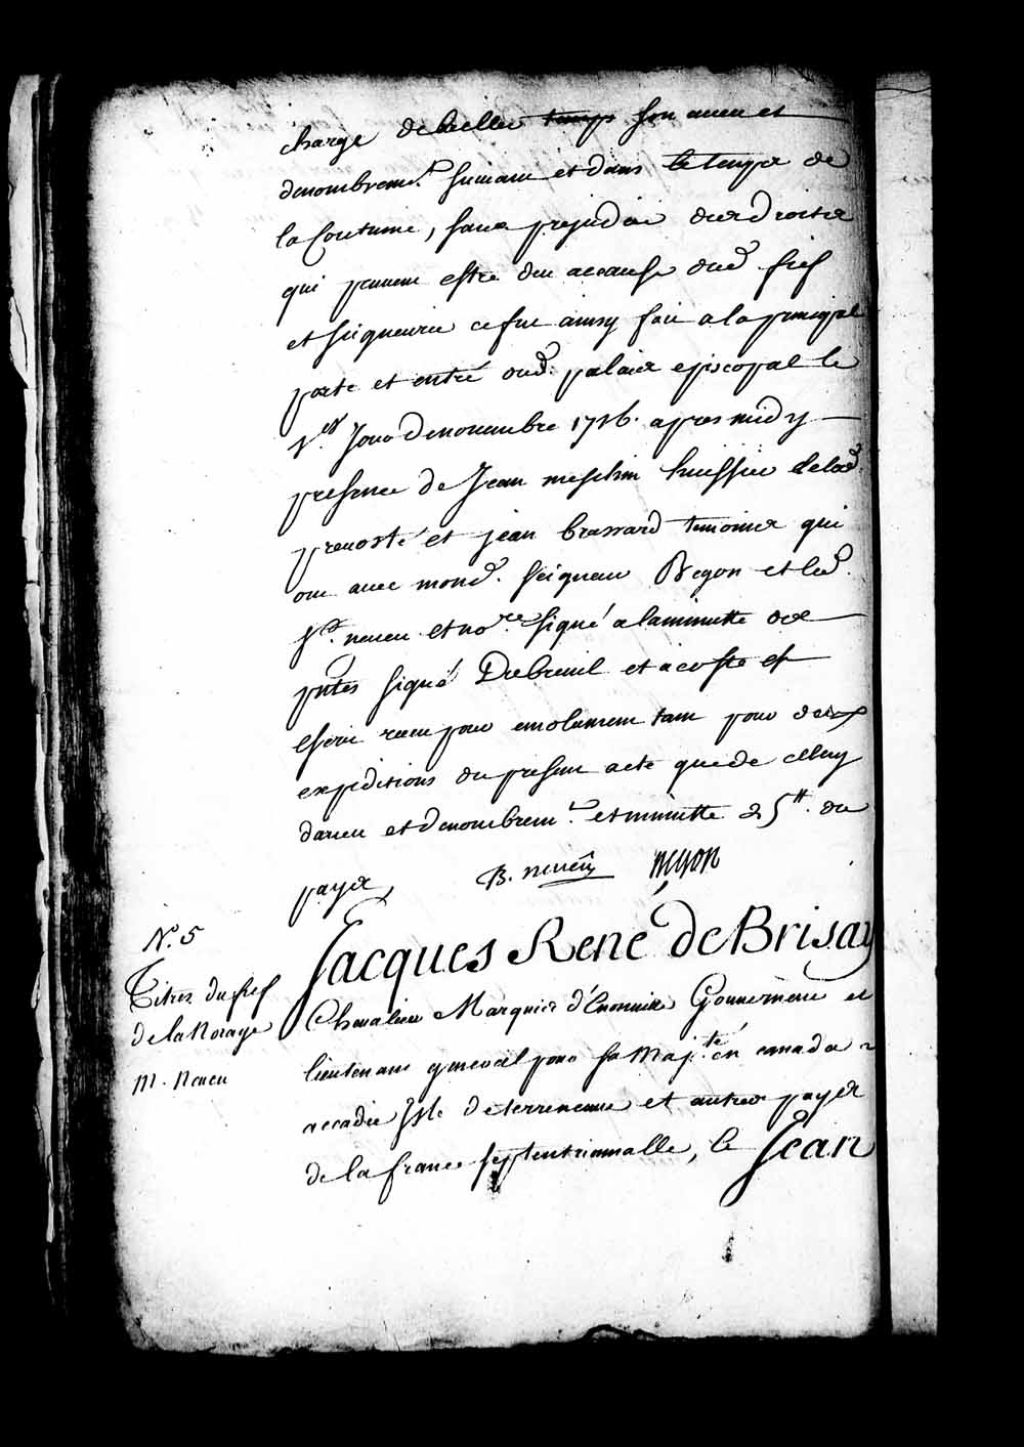 charge de bailler temps son aveu et
denombremt. suivant et dans le temps de
la Coutume, sans prejudice des droits
qui peuvent estre deu a cause dud fief
et seigneurie ce fut ainsy fait a la principal
porte et entré dud. palais episcopal le
Jour de novembre 1716. apres midy
presence de Jean meschin huissier de lad.
prevosté et jean brassard temoins qui
ont avec mond. seigneur Begon et led.
sr. neveu et nore. signé a la minutte des
pntes signé Dubreuil et a coste est
escrit receu pour emolument tant pour deux
expeditions du present acte que de celluy
daveu et denombremt. et minutte 25lt. du
payes,
B. neveu
Begon
No. 5
Titres du fief
de la Noraye
M. Neveu
Jacques René de Brisay
Chevalier Marquis d'Enonville Gouverneur et
lieutenant general pour sa Majté. en canada
accadie Isle de terreneuve et autres payes
de la france septentrionnalle, le Jean